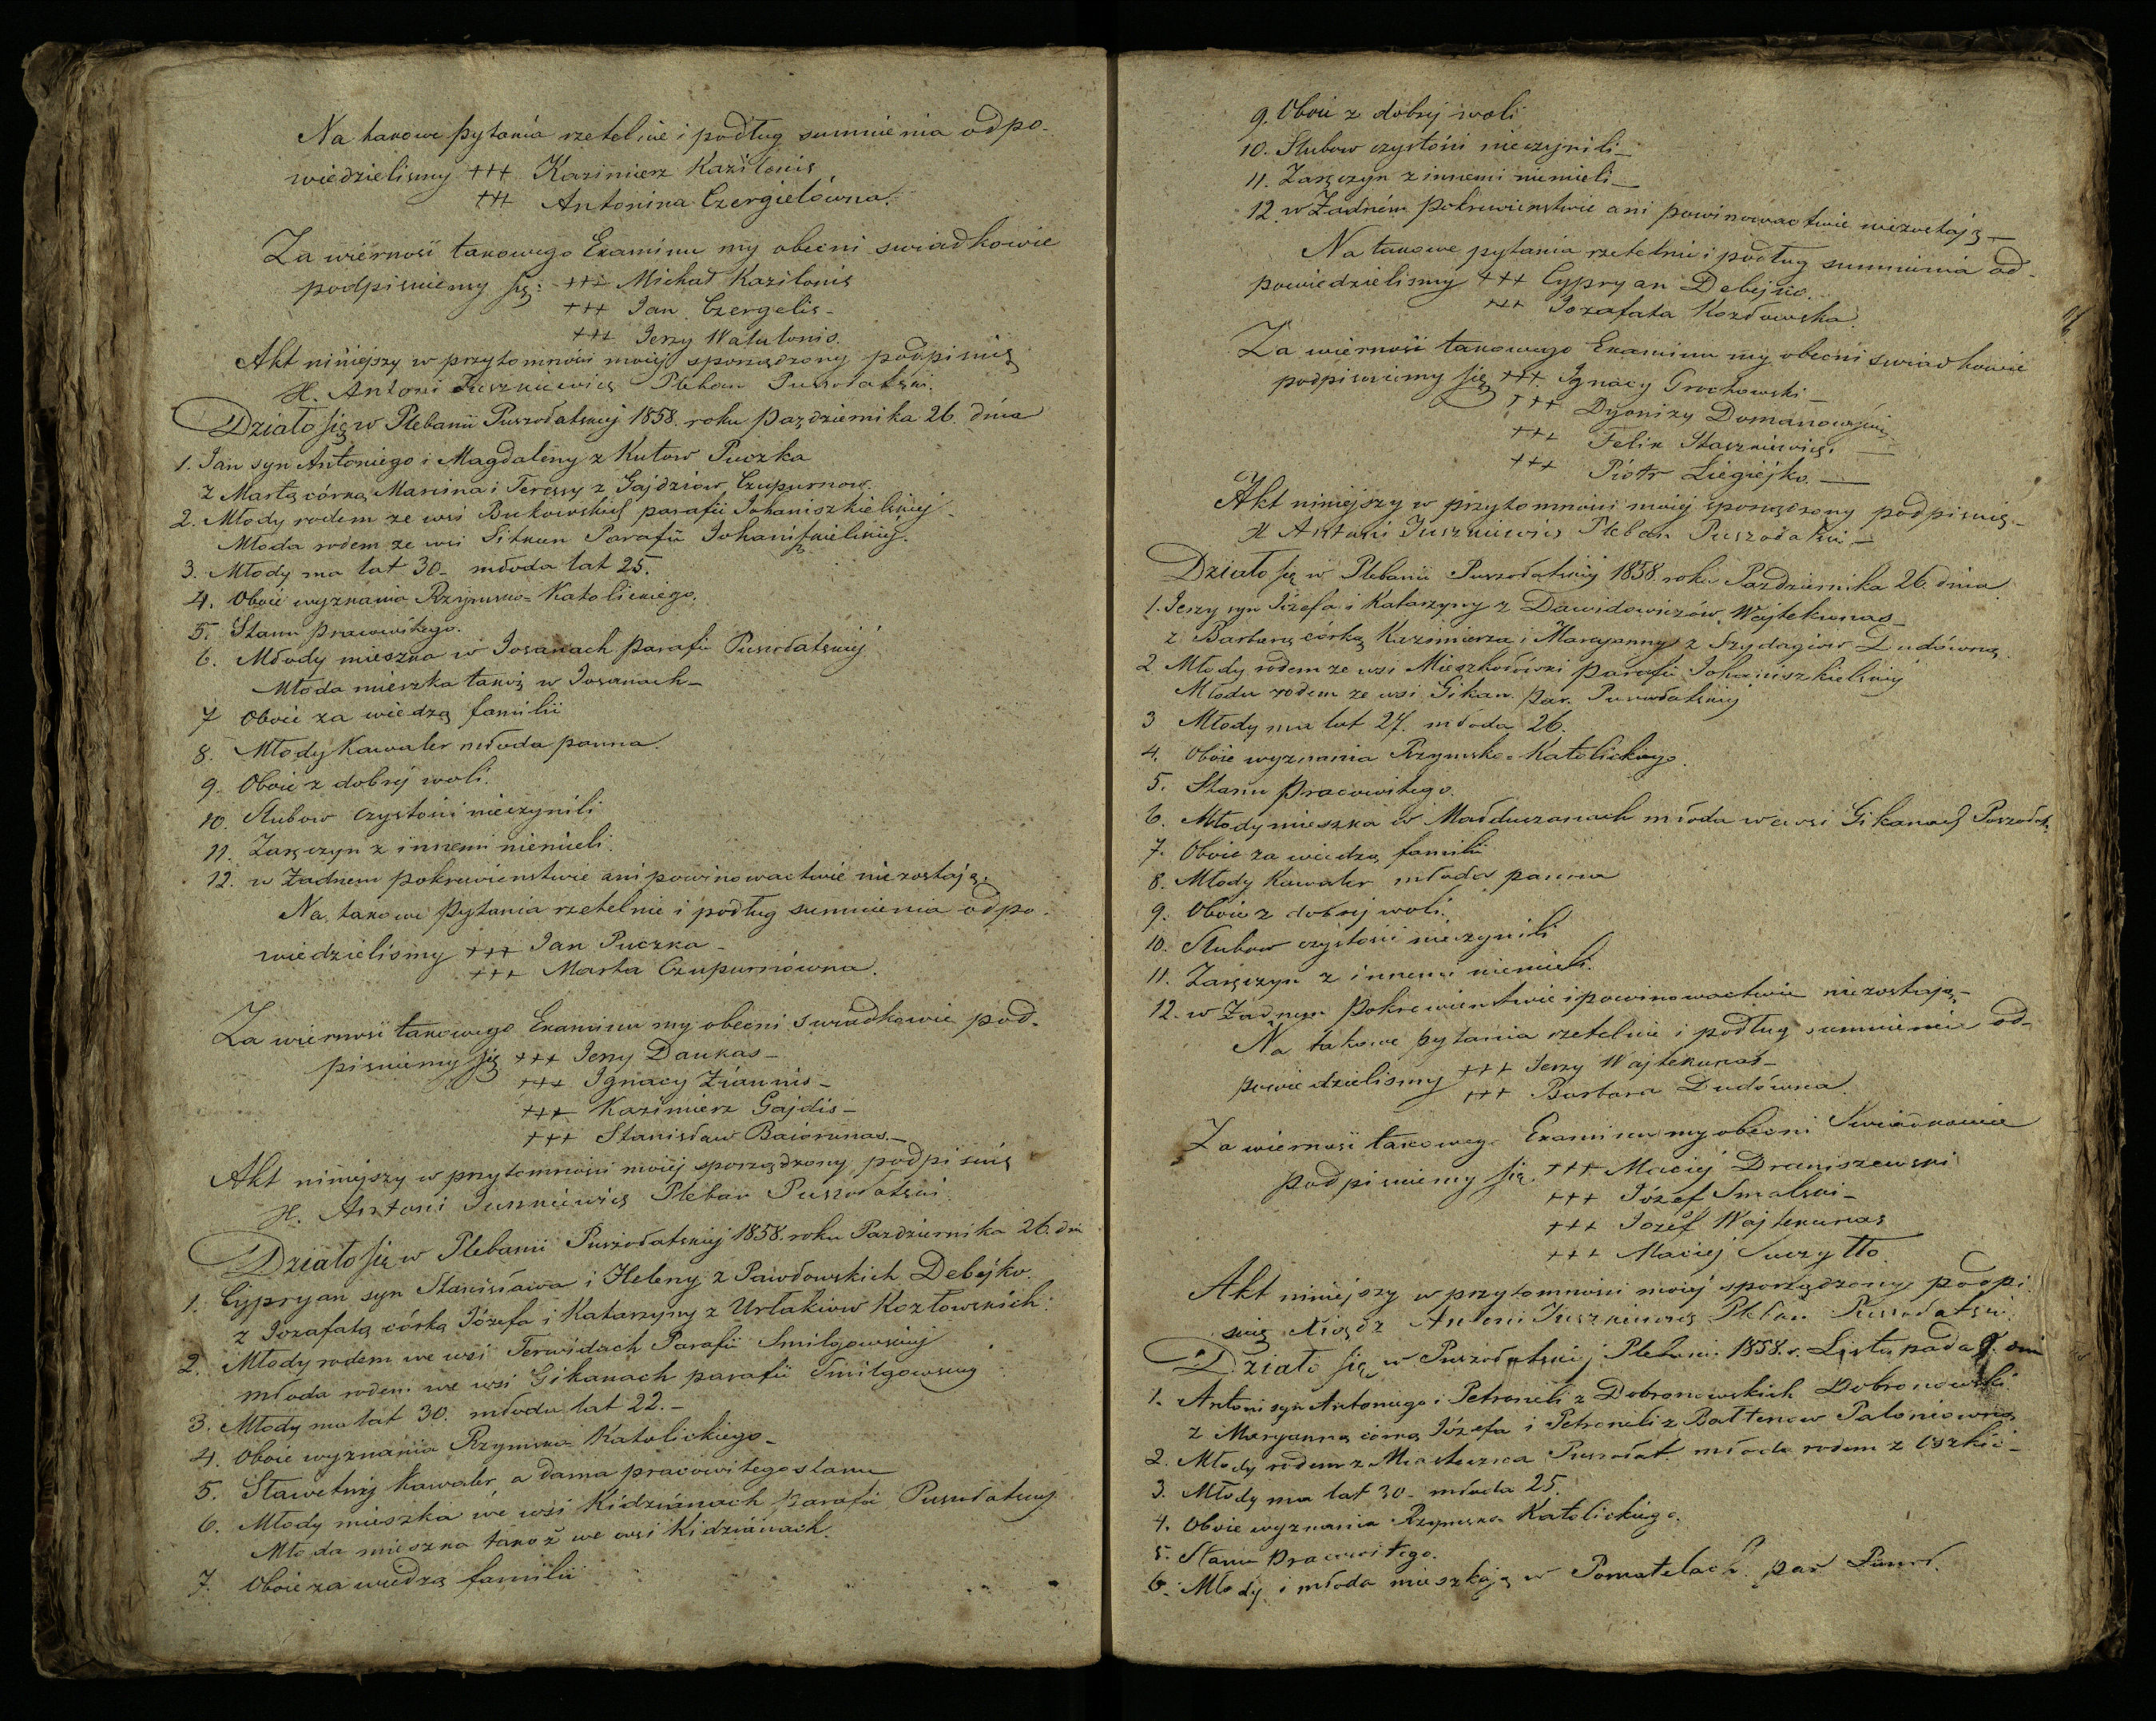 Na takowe pytania rzetelnie i podług sumnienia odpo-
wiedzielismy +++ Kazimierz Kazilonis
+++ Antonina Czergielówna.
Za wierność takowego Examinu my obecni swiadkowie
podpisuiemy się: +++ Michał Kazilonis
+++ Jan Czergelis -
+++ Jerzy Watutonis.
Akt niniejszy w przytomności moiej sporządzony podpisuię
X. Antoni Juszkiewicz Pleban Puszołatski.
Działo się w Plebanii Puszołatskiej 1858. roku Pazdziernika 26. dnia
1. Jan syn Antoniego i Magdaleny z Kutow Puczka
z Martą córką Marcina i Teressy z Gajdziow Czupurnow.
2. Młody rodem ze wsi parafii Johaniszkielskiej -
Młoda rodem ze wsi Parafii Johaniszkielskiej.
3. Młody ma lat 30 - młoda lat 25.
4. Oboie wyznania Rzymsko = Katolickiego.
5. Stanu pracowitego.
6. Młody mieszka w Josanach parafii Puszołatskiej
Młoda mieszka takoż w Josanach -
7 Oboie za wiedzą familii
8. Młody Kawaler młoda panna.
9. Oboie z dobrej woli.
10. Slubow czystości nieczynili
11. Zaręczyn z innemi niemieli.
12. w żadnem pokrewienstwie ani powinowactwie niezostają.
Na takowe pytania rzetelnie i podług sumnienia odpo-
wiedzielismy +++ Jan Puczka -
+++ Marta Czupurnówna.
Za wierność takowego Examinu my obecni swiadkowie pod-
pisuiemy się +++ Jerzy Daukas -
+++ Ignacy Ziaunis -
+++ Kazimierz Gajdis -
+++ Stanisław Baiorunas. -
Akt niniejszy w przytomności moiej sporządzony podpisuię
X. Antoni Juszkiewicz Pleban Puszołatski.
Działo się w Plebanii Puszołatskiej 1858. roku Pazdziernika 26. dni
1. Cypryan syn Stanisława i Heleny z Pawłowskich Debejko.
z Jozafatą córką Józefa i Katarzyny z Urlakiow Kozłowskich.
2. Młody rodem we wsi Terwidach Parafii Smilgowskiej
młoda rodem we wsi Gikanach parafii Smilgowskiej
3. Młody ma lat 30. młoda lat 22. -
4. Oboie wyznania Rzymsko Katolickiego -
5. Sławetny Kawaler a dama pracowitego stanu
6. Młody mieszka we wsi Kidzianach parafii Puszołatskiej
Młoda mieszka takoż we wsi Kidzianach.
7. Oboie za wiedzą familii
9. Oboie z dobrej woli
10. Slubow czystości nieczynili -
11. Zaręczyn z innemi niemieli -
12. w Żadném pokrewienstwie ani powinowactwie niezostają -
Na takowe pytania rzetelnie i podług sumnienia od-
powiedzielismy +++ Cypryan Debejko.
+++ Jozafata Kozłowska.
Za wiernosć takowego Examinu my obecni swiadkowie
podpisuiemy się +++ Ignacy Grochowski -
+++ Dyonizy
+++ Felix Staszkiewicz. -
+++ Piotr Liegiejko. -
Akt niniejszy w przytomności moiej sporządzony podpisuię -
X Antoni Juszkiewicz Pleban Puszołatski -
Działo się w Plebanii Puszołatskiej 1858. roku Pazdziernika 26. dnia.
1. Jerzy syn Józefa i Katarzyny z Dawidowiczów Wojtekunas -
z Barbarą córką Kazimierza i Maryanny z Szydagiow Dudówną.
2 Młody rodem ze wsi parafii Johaniszkielskiej
Młoda rodem ze wsi Gikan par. Puszołatskiej
3 Młody ma lat 27. młoda 26.
4. Oboie wyznania Rzymsko = Katolickiego.
5. Stanu Pracowitego.
6. Młody mieszka w Małduszanach młoda we wsi Gikanach Puszołat.
7. Oboie za wiedzą familii
8. Młody Kawaler młoda panna
9. Oboie z dobrej woli.
10. Slubow czystości nieczynili
11. Zaręczyn z innemi niemieli.
12. w Żadnym Pokrewienstwie i powinowactwie niezostają -
Na takowe pytania rzetelnie i podług sumnienia od-
powiedzielismy +++ Jerzy Wojtekunas -
+++ Barbara Dudówna.
Za wiernosć takowego Examinu my obecni Swiadkowie
podpisuiemy się. +++ Maciej Draniszewski
+++ Józef Smalski -
+++ Jozef Wojtekunas
+++ Maciej Suczyłło.
Akt niniejszy w przytomności moiej sporządzony podpi-
suię Xiądz Antoni Juszkiewicz Pleban Puszołatski.
Działo się w Puszołatskiej Plebanii 1858. r. Listopada dni
1. Antoni syn Antoniego i Petroneli z Dobronowskich Dobronowski
z Maryanną córką Józefa i Petroneli z Baltenow Paloniowną
2. Młody rodem z Miasteczka Puszołat. młoda rodem z
3. Młody ma lat 30 - młoda 25.
4. Oboie wyznania Rzymsko Katolickiego.
5. Stanu Pracowitego.
6. Młody i młoda mieszkają w par